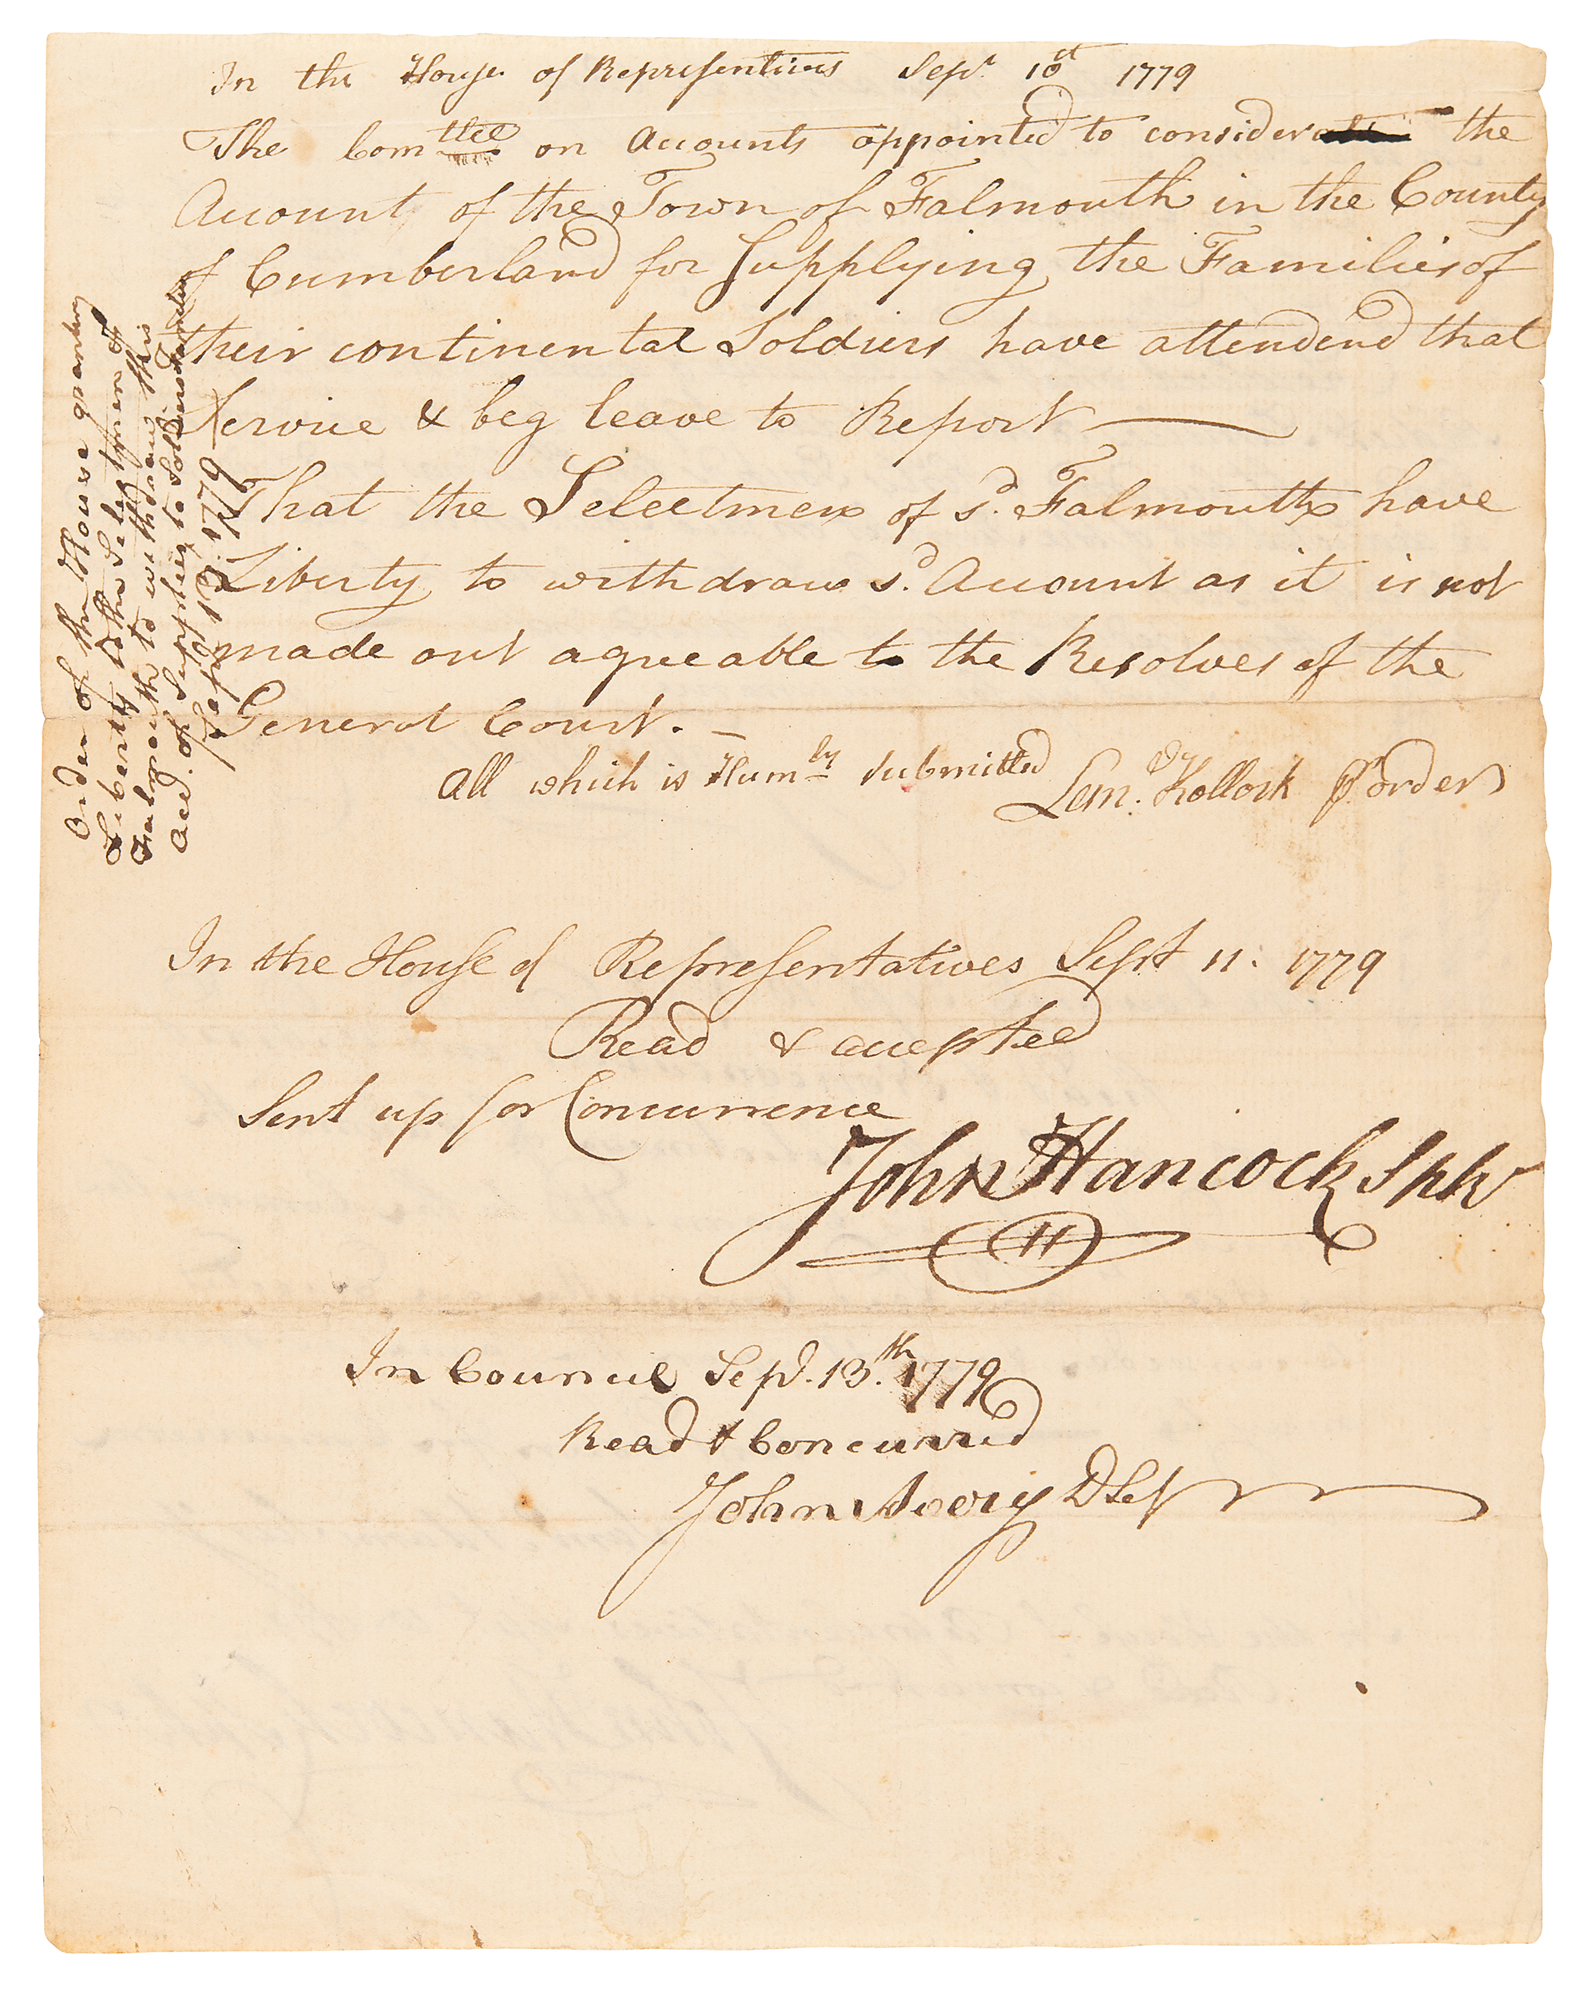 In the House of Representives Sepr. 10st 1779
The Comttee on Accounts appointed to consider the
Account of the Town of Falmouth in the County
of Cumberland for Supplying the Families of
their continental Soldiers have attendend that
Service & beg leave to Report
That the Selectmen of sd. Falmouth have
Liberty to withdraw sd. Account as it is not
made out agreeable to the Resolves of the
General Court. –
All which is Humbly submitted
Lem. Kollock pr order
In the House of Representatives Sept 11: 1779
Read & accepted
Sent up for Concurrence
John Hancock Spkr
In Council Sepr. 13th. 1779
Read & Concurred
John Avery D Sey
Order of the House granting
Liberty to the Selectmen of
Falmouth to withdraw this
Acct. of Supplies to Soldiers families
Sepr 13. 1779